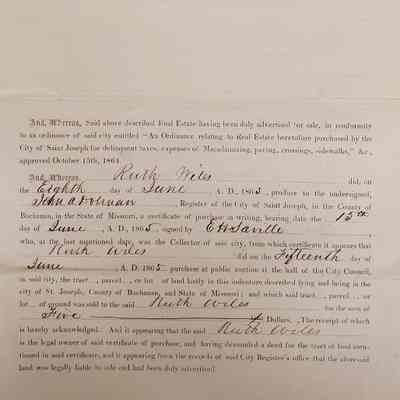 And Whereas, Said above described Real Estate having been duly advertised for sale, in conformity
to an ordinance of said city entitled "An Ordinance relating to Real Estate heretofore purchased by the
City of Saint Joseph for delinquent taxes, expenses of Macadamizing, paving, crossings, sidewalks," &c.,
approved October 15th, 1864.
And Whereas, Ruth Wiles did, on
the Eighth day of June, A. D. 1865, produce to the undersigned,
John A Dolman, Register of the City of Saint Joseph, in the County of
Buchanan, in the State of Missouri, a certificate of purchase in writing, bearing date the 15th
day of June, A. D. 1865, signed by E H Saville
who, at the last mentioned date, was the Collector of said city, from which certificate it appears that
Ruth Wiles did on the Fifteenth day of
June, A. D. 1865 purchase at public auction at the hall of the City Council,
in said city, the tract, parcel, or lot of land lastly in this indenture described lying and being in the
city of St. Joseph, County of Buchanan, and State of Missouri; and which said tract, parcel, or
lot of ground was sold to the said Ruth Wiles for the sum of
Five Dollars, The receipt of which
is hereby acknowledged. And it appearing that the said Ruth Wiles
is the legal owner of said certificate of purchase, and having demanded a deed for the tract of land men-
tioned in said certificate, and it appearing from the records of said City Register's office that the aforesaid
land was legally liable to sale and had been duly advertised